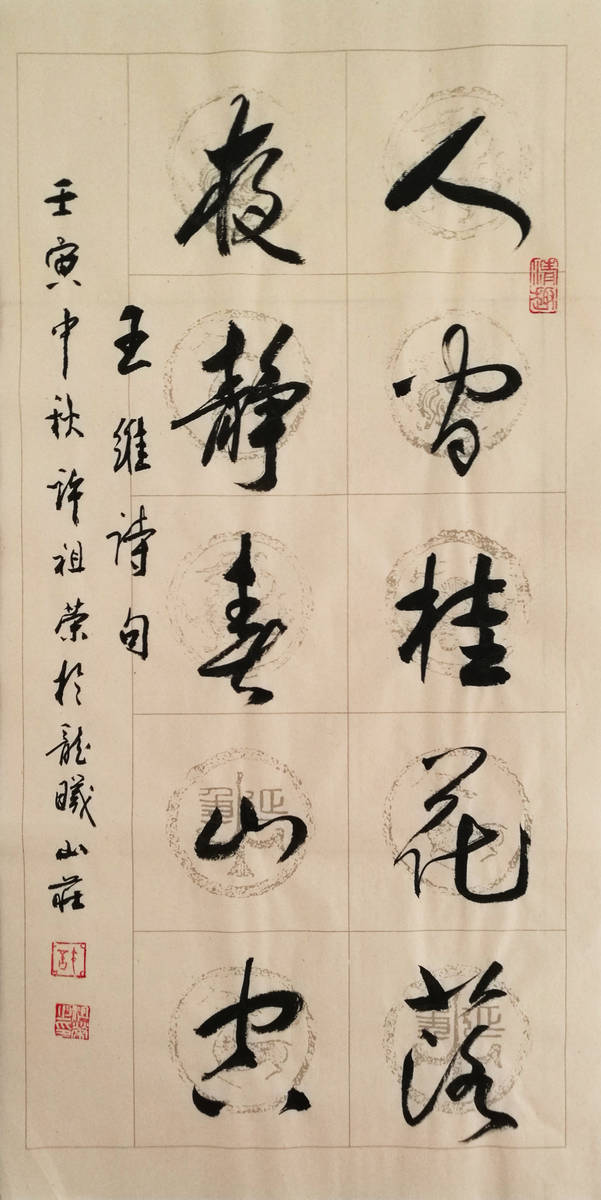 人闲桂花落
夜静春山空
王维诗句
壬寅中秋许祖荣於龍曦山莊
清趣